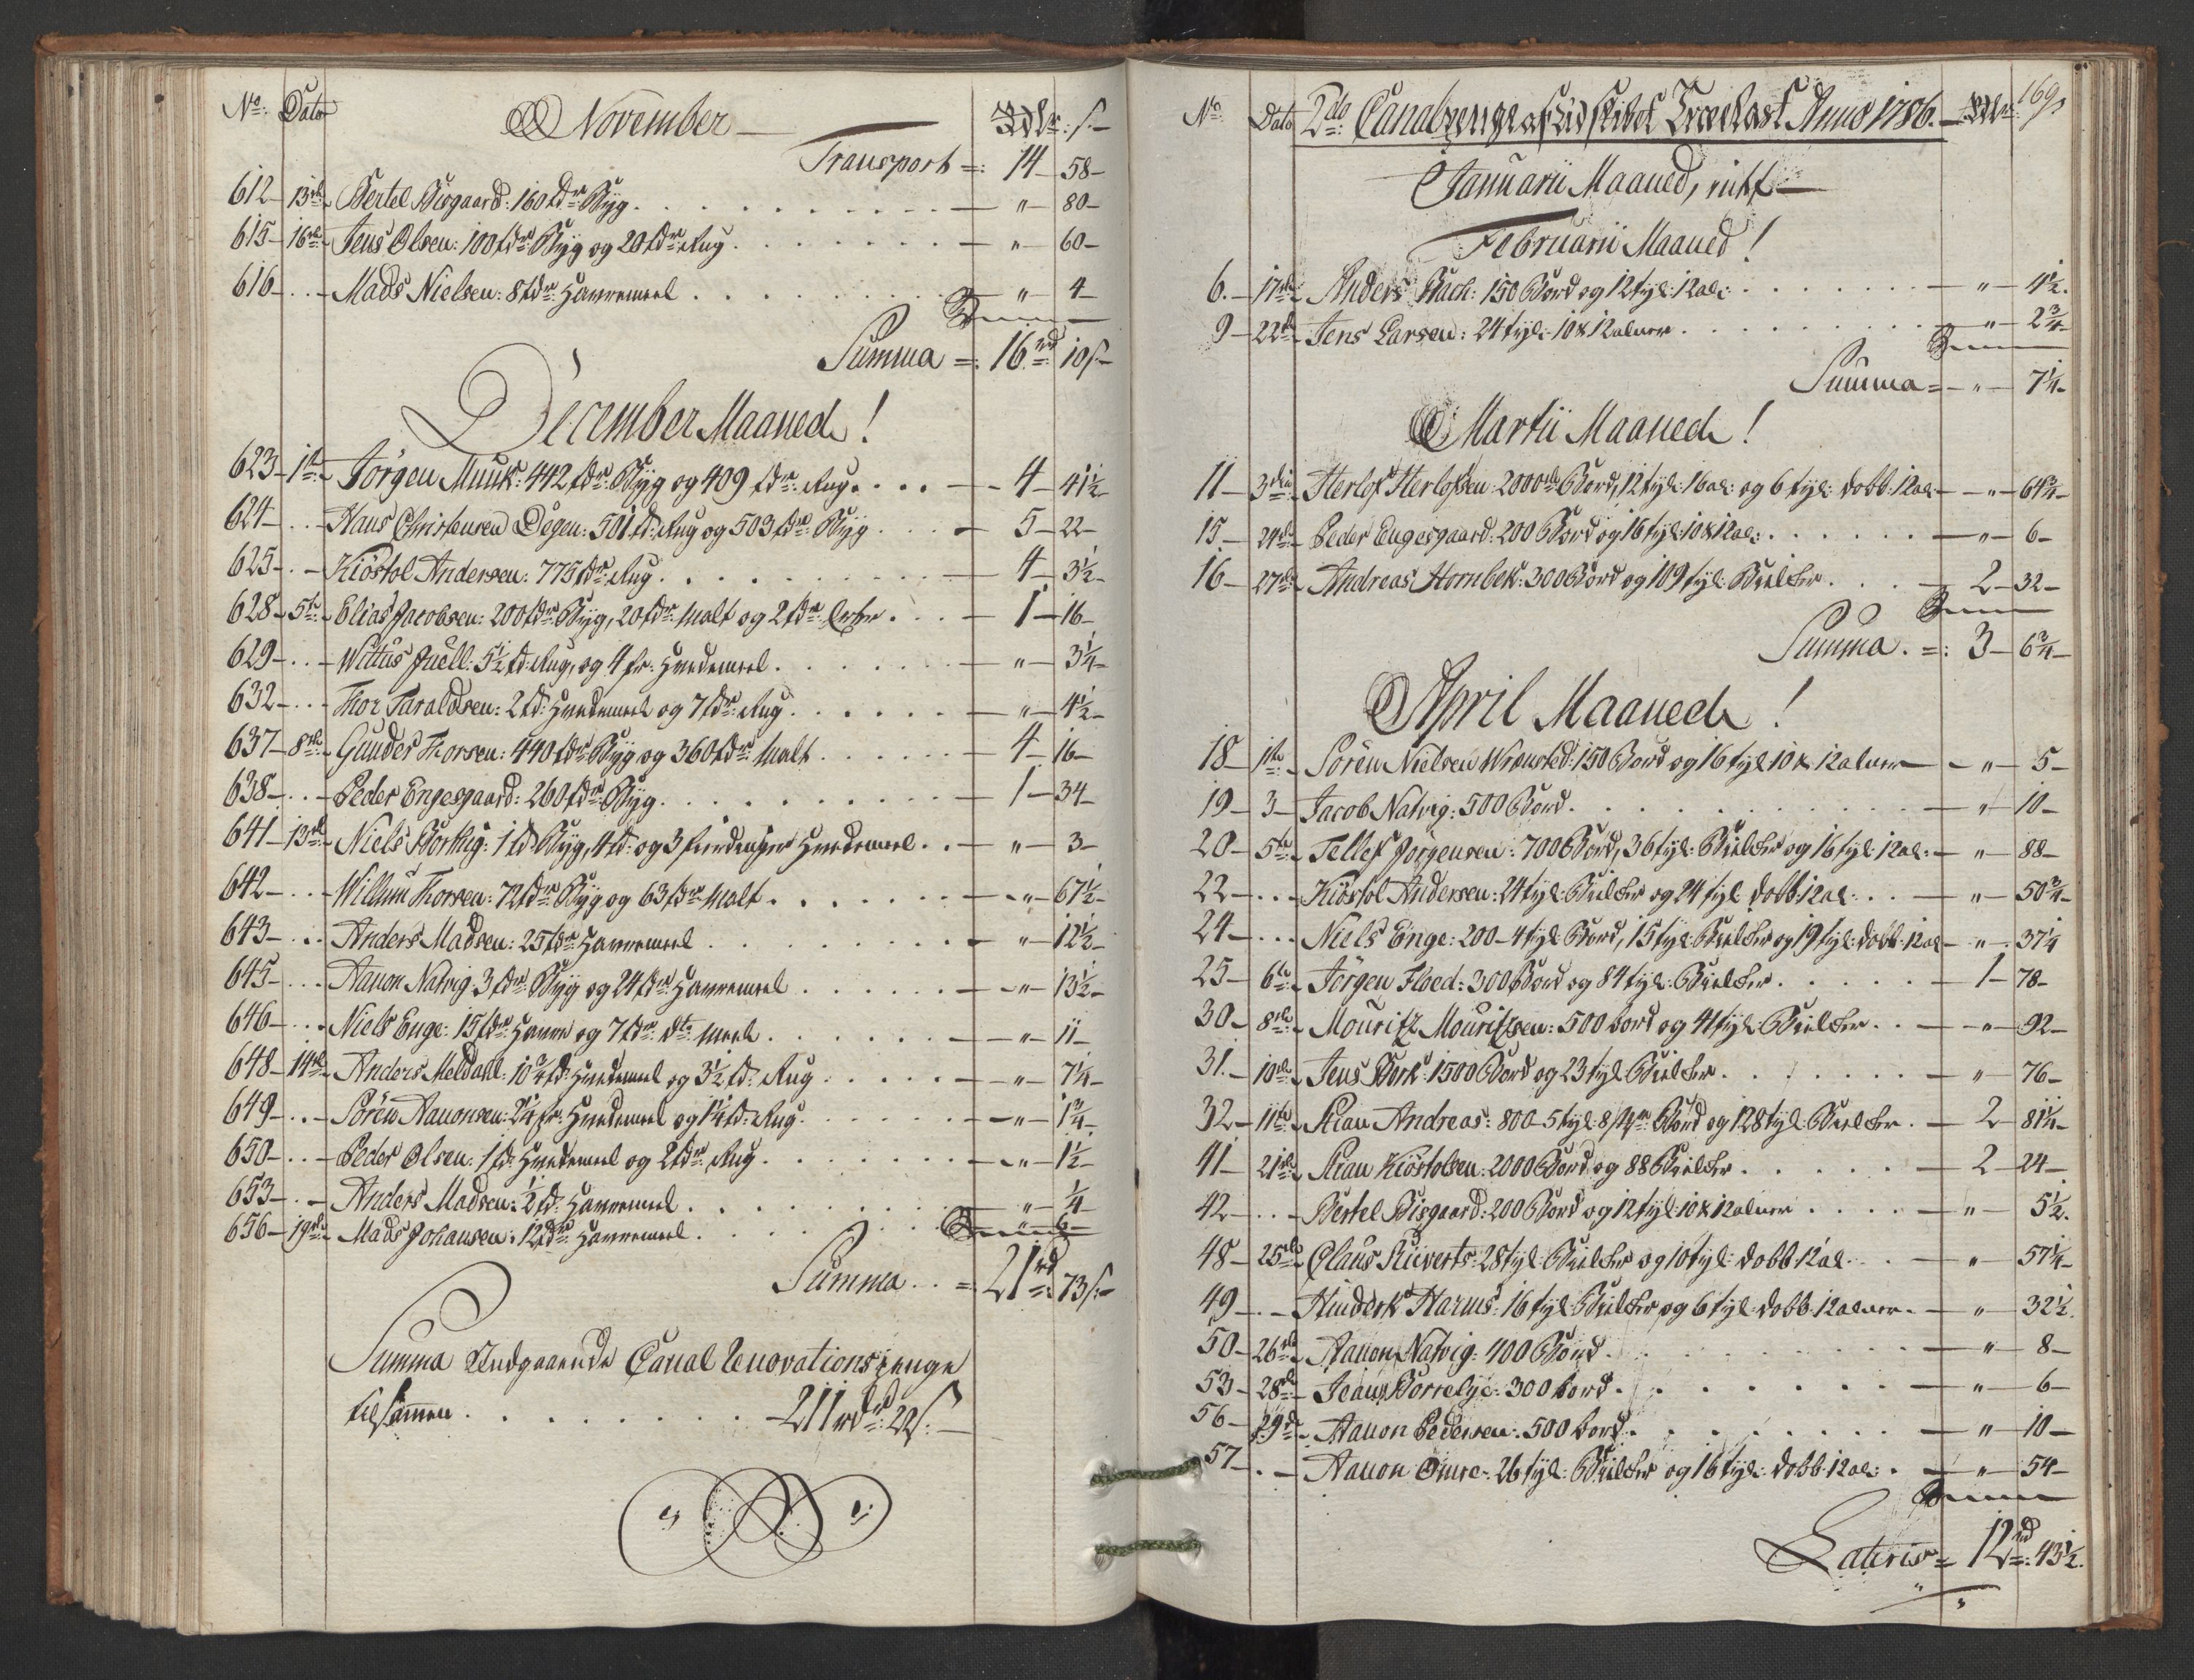 No: Dato November — Rdlr: s:—
Transport =: 14 — 58 —
612 — 13de Bertel Bisgaard: 160 tdr Byg . . . — " — 80 —
615 — 16de Jens Olsen: 100 tdr Byg og 20 tdr: Rug . . . — " — 60 —
616 — . . — Mads Nielsen: 8 tdr: Havremeel . . . — " — 4 —
Summa =: 16 rd =: 10 s —
December Maaned!
623 — 1te Jörgen Muuk: 442 tdr: Byg og 409 tdr: Rug . . . — 4 — 41½
624 — . . — Hans Christensen Degen: 501 td: Rug og 503 tdr: Byg . . — 5 — 22 —
625 — . — Kiöstol Andersen: 775 tdr: Rug . . . — 4 — 3½ —
628 — 5te Elias Jacobsen: 200 tdr: Byg, 20 tdr: Malt og 2 tdr: Erter . . — 1 — 16 —
629 — . . — Wittus Juell: 5½ td: Rug, og 4 fr: Hvedemeel . . . — " — 3¼ —
632 — . . — Thor Taraldsen: 2 td: Hvedemeel og 7 tdr: Rug . . . — " — 4½ —
637 — 8de Gunder Thorsen: 440 tdr Byg og 360 tdr: Malt . . . — 4 — 16 —
638 — . . — Peder Engesgaard: 260 tdr: Byg . . . — 1 — 34 —
641 — 13de Niels : 1 td: Byg, 4 td: og 3 fierdinger Hvedemeel . . — " — 3 —
642 — . . — Willum Thorsen: 72 tdr: Byg og 63 tdr Malt . . . — " — 67½ —
643 — . . Anders Madsen: 25 tdr Havremeel . . . — " — 12½ —
645 — . . Aanon Natvig 3 tdr Byg og 24 tdr: Havremeel . . . — " — 13½ —
646 — . . Niels Enge: 15 tdr: Havre og 7 tdr: dto meel . . . — " — 11 —
648 — 14de Anders Meldahl: 10¾ td: Hvedemeel og 3½ td: Rug . . . — " — 7¼ —
649 — . . — Sören Aanonsen: 2¼ fr: Hvedemeel og 1¼ td: Rug . . . — " — 1¾ —
650 — . . — Peder Olsen: 1 td: Hvedemeel og 2 tdr: Rug . . . — " — 1½ —
653 — . — Anders Madsen: ½ td: Havremeel . . . — " — ¼
656 — 19de Mads Johansen: 12 tdr: Havremeel . . . " 6 —
Summa . . = 21 rd =: 73 s:—
Summa Indgaaende Canal Renovationspenge
tilsammen . . . . . . . — 211 rdr: 22 s:—
No: Dato 2do: Canalpenge af Træelast Anno 1786. — Rdlr: 169.
Januarii Maaned, intet —
Februarii Maaned!
6. — 17de Anders Bach: 150 Bord og 12 tyl: 12 al: . . . — " — 4½.
9 — 22de Jens Larsen: 24 tyl: 10 x 12 alner . . . — " — 2¾ —
Summa = — " — 7¼ —
Martii Maaned!
11 — 3die Herlof Herlofsen: 2000de Bord, 12 tyl: 16 al: og 6 tyl: dobb: 12 al: — " — 64¾ —
15 — 24de Peder Engesgaard: 200 Bord og 16 tyl: 10 x 12 al: . . . — " — 6 —
16 — 27de Andreas Hornbek: 300 Bord og 109 tyl: Bielker . . . — 2 — 32 —
Summa . =: 3 — 6¾ —
April Maaned!
18 — 1te Sören Nielsen Wrønsted: 150 Bord og 16 tyl 10 x 12 alner — " — 5 —
19 — 3 — Jacob Natvig: 500 Bord . . . — " — 10 —
20 — 5te Tellef Jörgensen: 700 Bord, 36 tyl: Bielker og 16 tyl: 12 al: — " — 88 —
22 — . . . Kiöstol Andersen: 24 tyl: Bielker og 24 tyl: dobb: 12 al: . . — " — 50¾ —
24 — . . . Niels Enge: 200 — 4 tyl: Bord, 15 tyl: Bielker og 19 tyl: dobb: 12 al — " — 37¼
25 — 6te Jörgen Floed: 300 Bord og 84 tyl: Bielker . . . — 1 — 78 —
30 — 8de Mouritz Mouritzsen: 500 bord og 41 tyl: Bielker . . — " — 92 —
31. — 10de Jens Bork: 1500 Bord og 23 tyl Bielker . . . — " — 76 —
32 — 11te Stian Andreas: 800 — 5 tyl: 8/14r: Bord og 128 tyl: Bielker . — 2 — 81¼ —
41 — 21de Stian Kiöstolsen: 2000 Bord og 88 Bielker . . . — 2 — 24 —
42 — . . — Bertel Bisgaard: 200 Bord og 12 tyl: 10 x 12 alner . . . — " — 5½.
48 — 25de Claus Sieverts: 28 tyl: Bielker og 10 tyl: dobb: 12 al: . . — " — 57¼ —
49 — . . — Hinderk Harms: 16 tyl: Bielker og 6 tyl: dobb: 12 alner. — " — 32½.
50 — 26de Aanon Natvig: 400 Bord . . . — " — 8 —
53 — 28de Jeans Borrelye: 300 bord . . . — " — 6 —
56 — 29de Aanon Pedersen: 500 bord . . . — " — 10 —
57 — . — Aanon : 26 tyl: Bielker og 16 tyl: dobb: 12 al: . — " — 54 —
Lateris = 12 rd =: 43½.